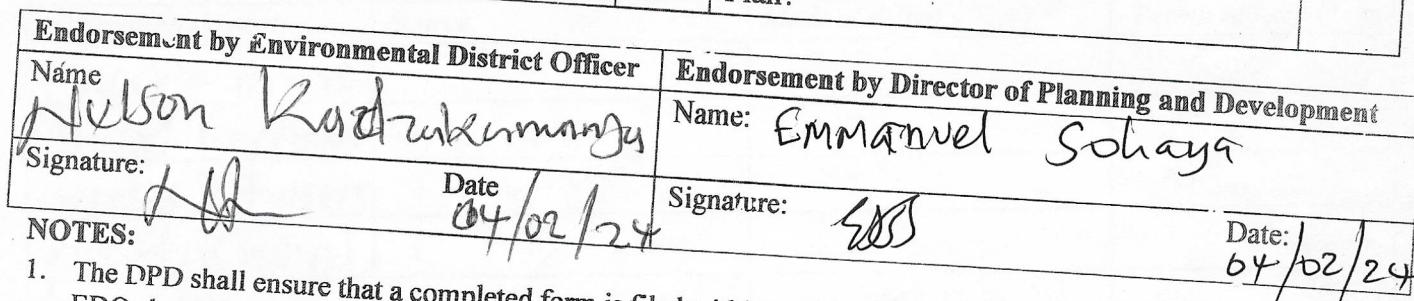 Plan.
Endorsement by Environmental District Officer
Name
Nelson
Signature:
Date
04/02/24
Endorsement by Director of Planning and Development
Name: Emmanuel Sohaya
Signature:
Date:
04/02/24
NOTES:
1. The DPD shall ensure that a completed form is filed